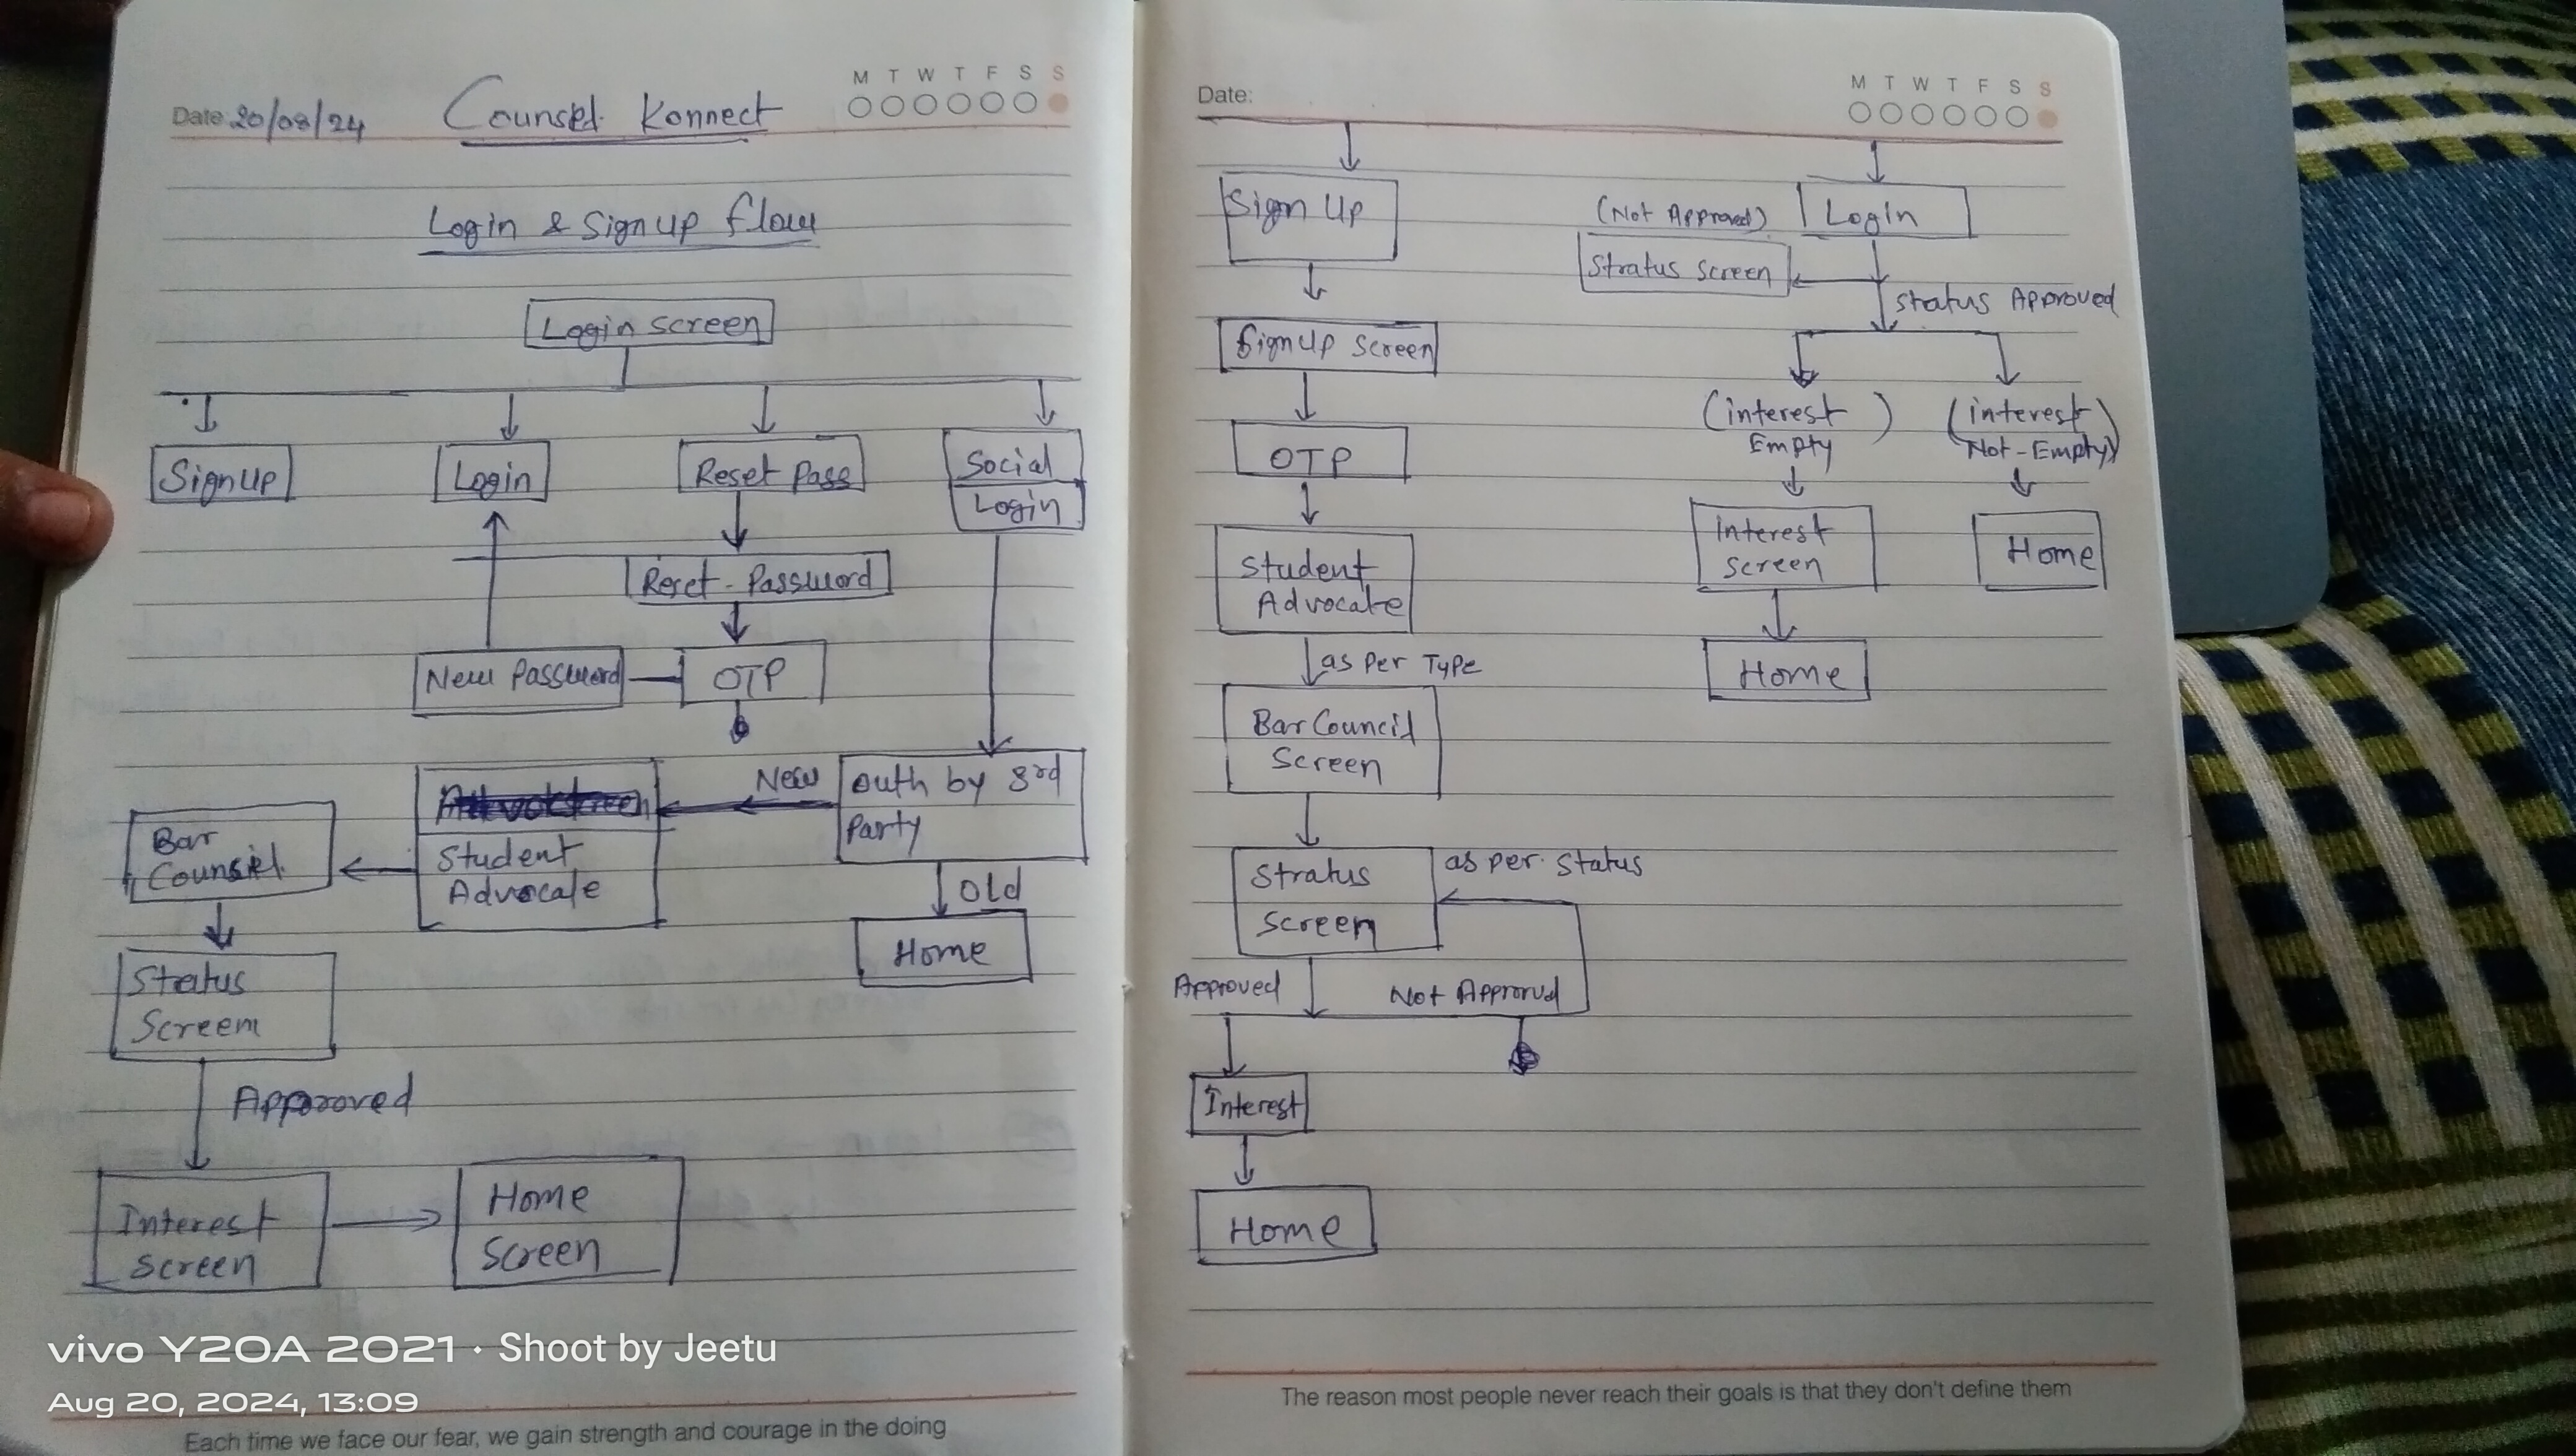 M T W T F S S
Date: 20/08/24
Counsel Konnect
Login & Signup flow
Login screen
SignUp
Login
Reset Pass
Social
Login
Reset-Password
New Password
OTP
New
Outh by 3rd
Party
Student
Advocate
Bar
Counsil
Old
Home
Status
Screen
Approved
Interest
Screen
Home
Screen
vivo Y20A 2021 · Shoot by Jeetu
Aug 20, 2024, 13:09
Each time we face our fear, we gain strength and courage in the doing
M T W T F S S
Date:
Sign Up
SignUp Screen
OTP
Student
Advocate
as per Type
Bar Council
Screen
Stratus
Screen
as per status
Approved
Not Approvud
Interest
Home
(Not Approved)
Login
Stratus Screen
status Approved
(interest
Empty)
(interest
Not-Empty)
Interest
Screen
Home
Home
The reason most people never reach their goals is that they don't define them